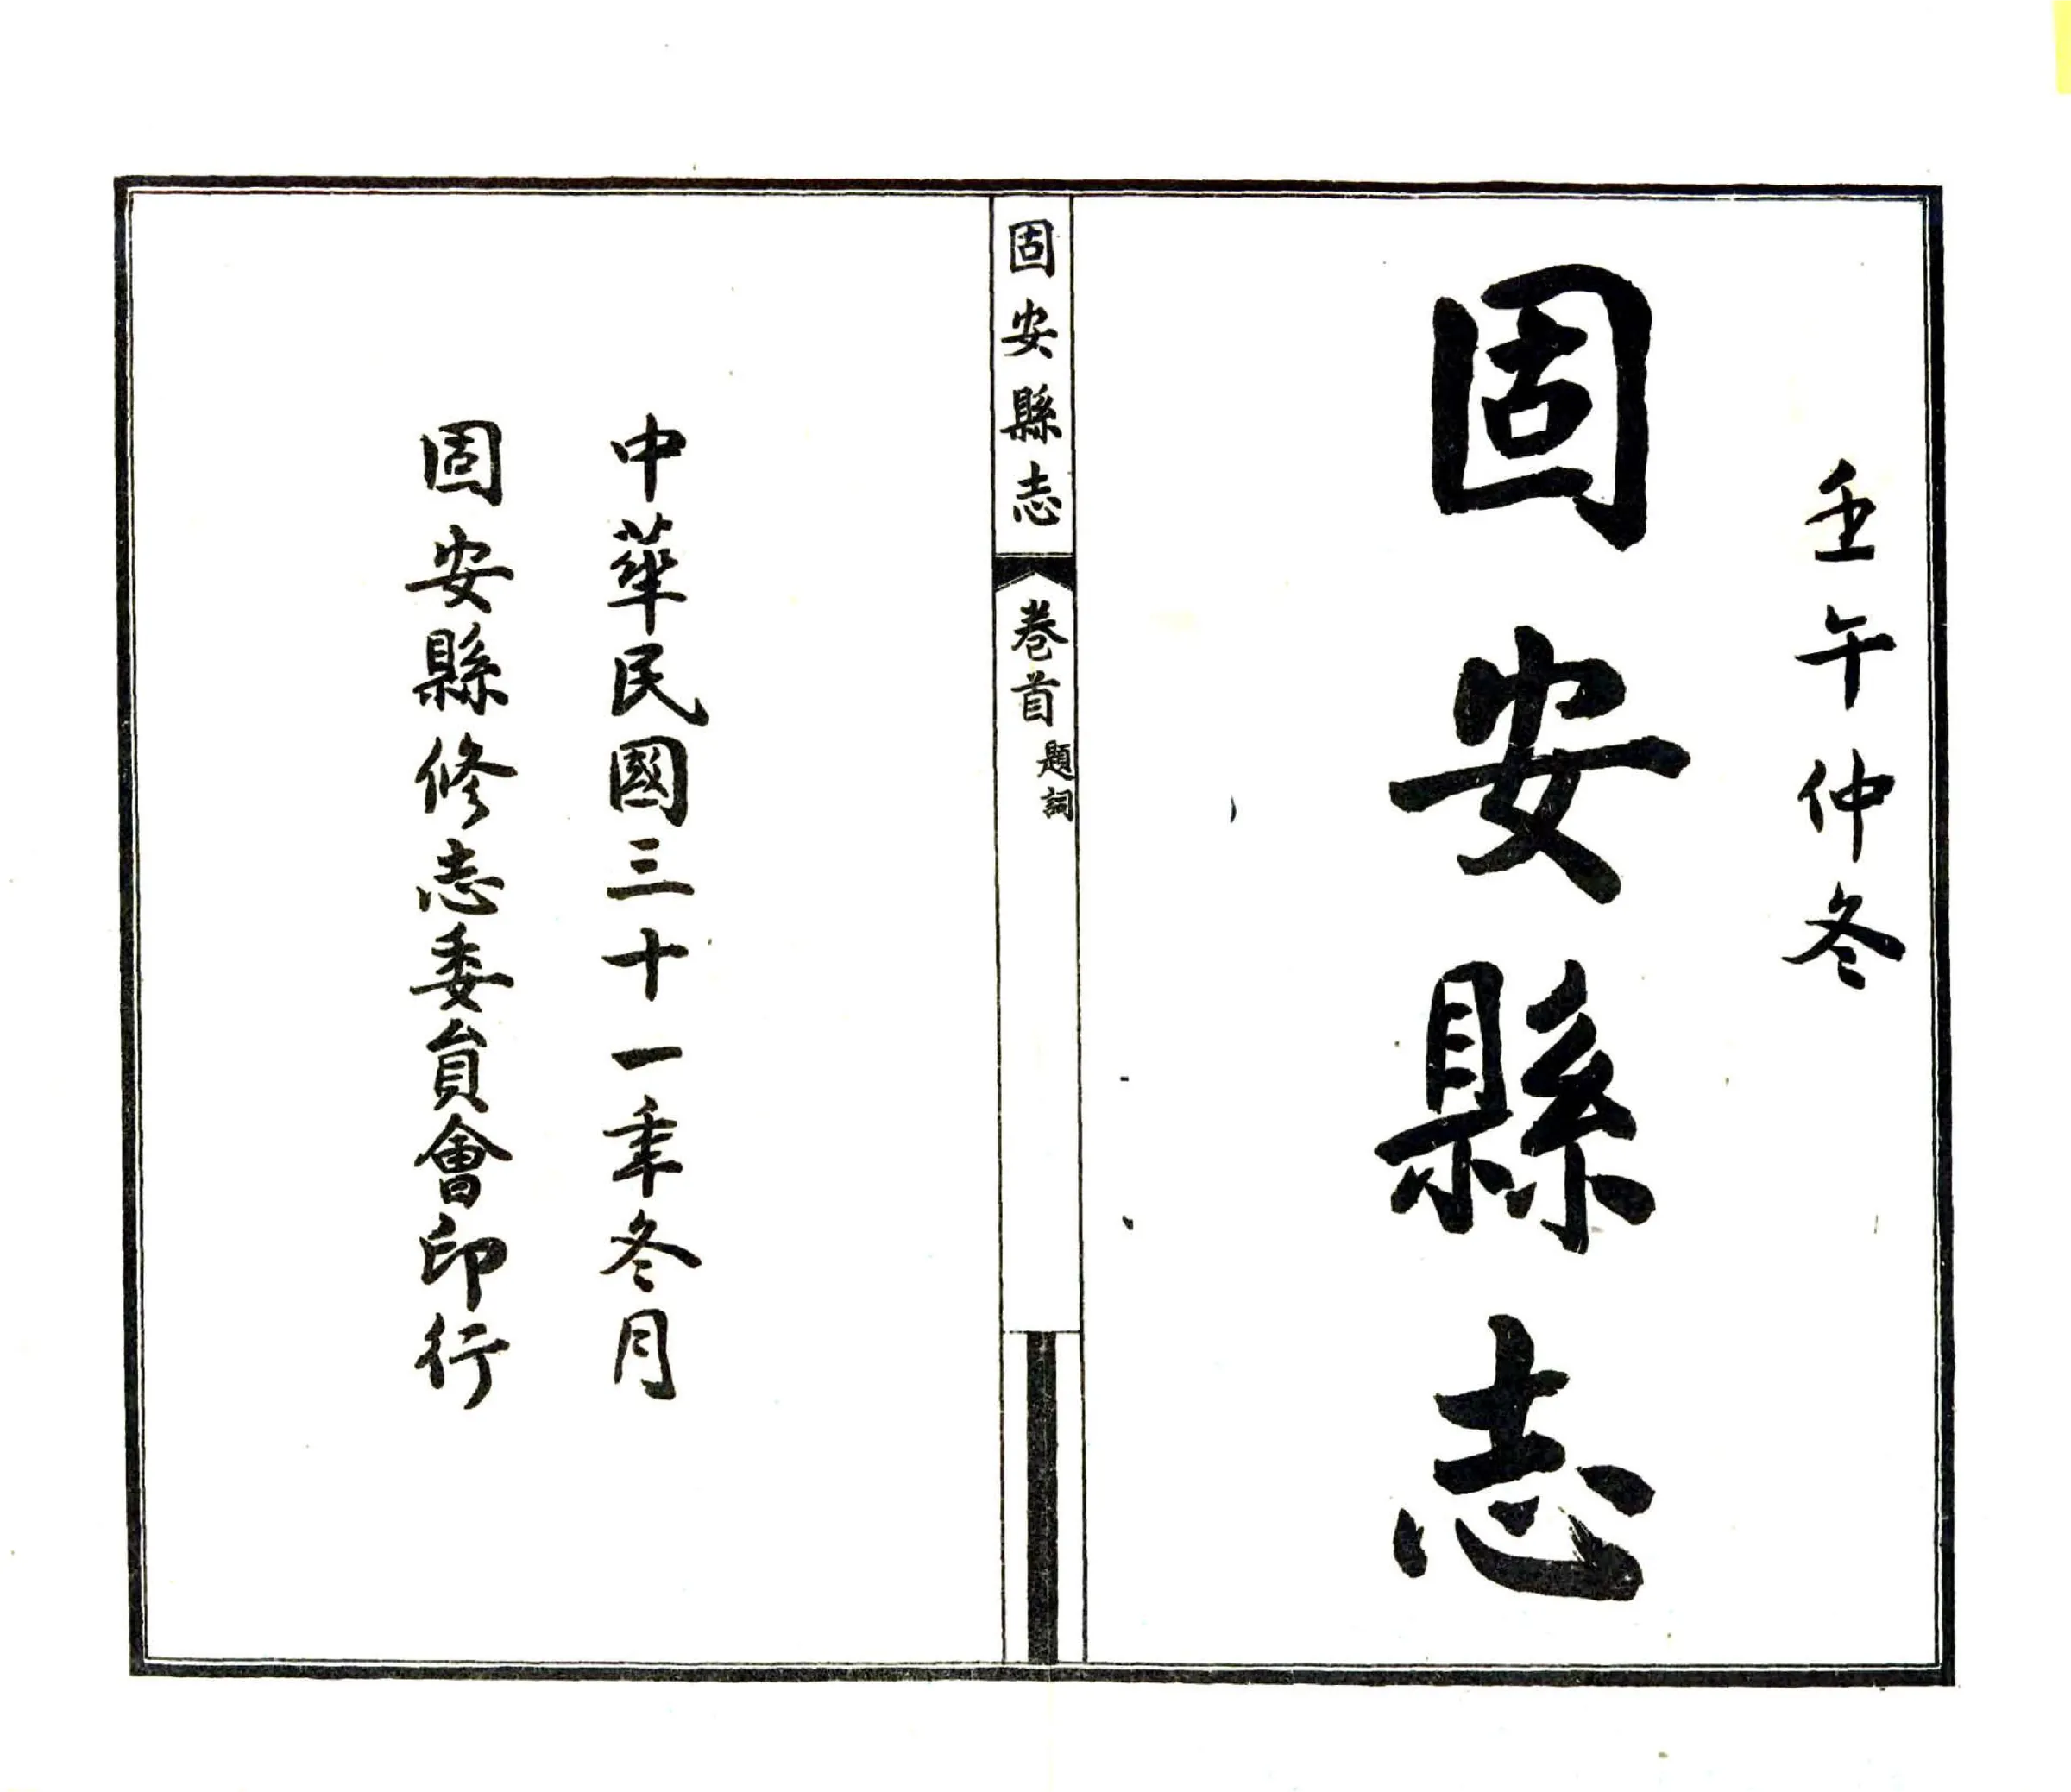 壬午仲冬
固安縣志
固安縣志
卷首
題詞
中華民國三十一年冬月
固安縣修志委員會印行